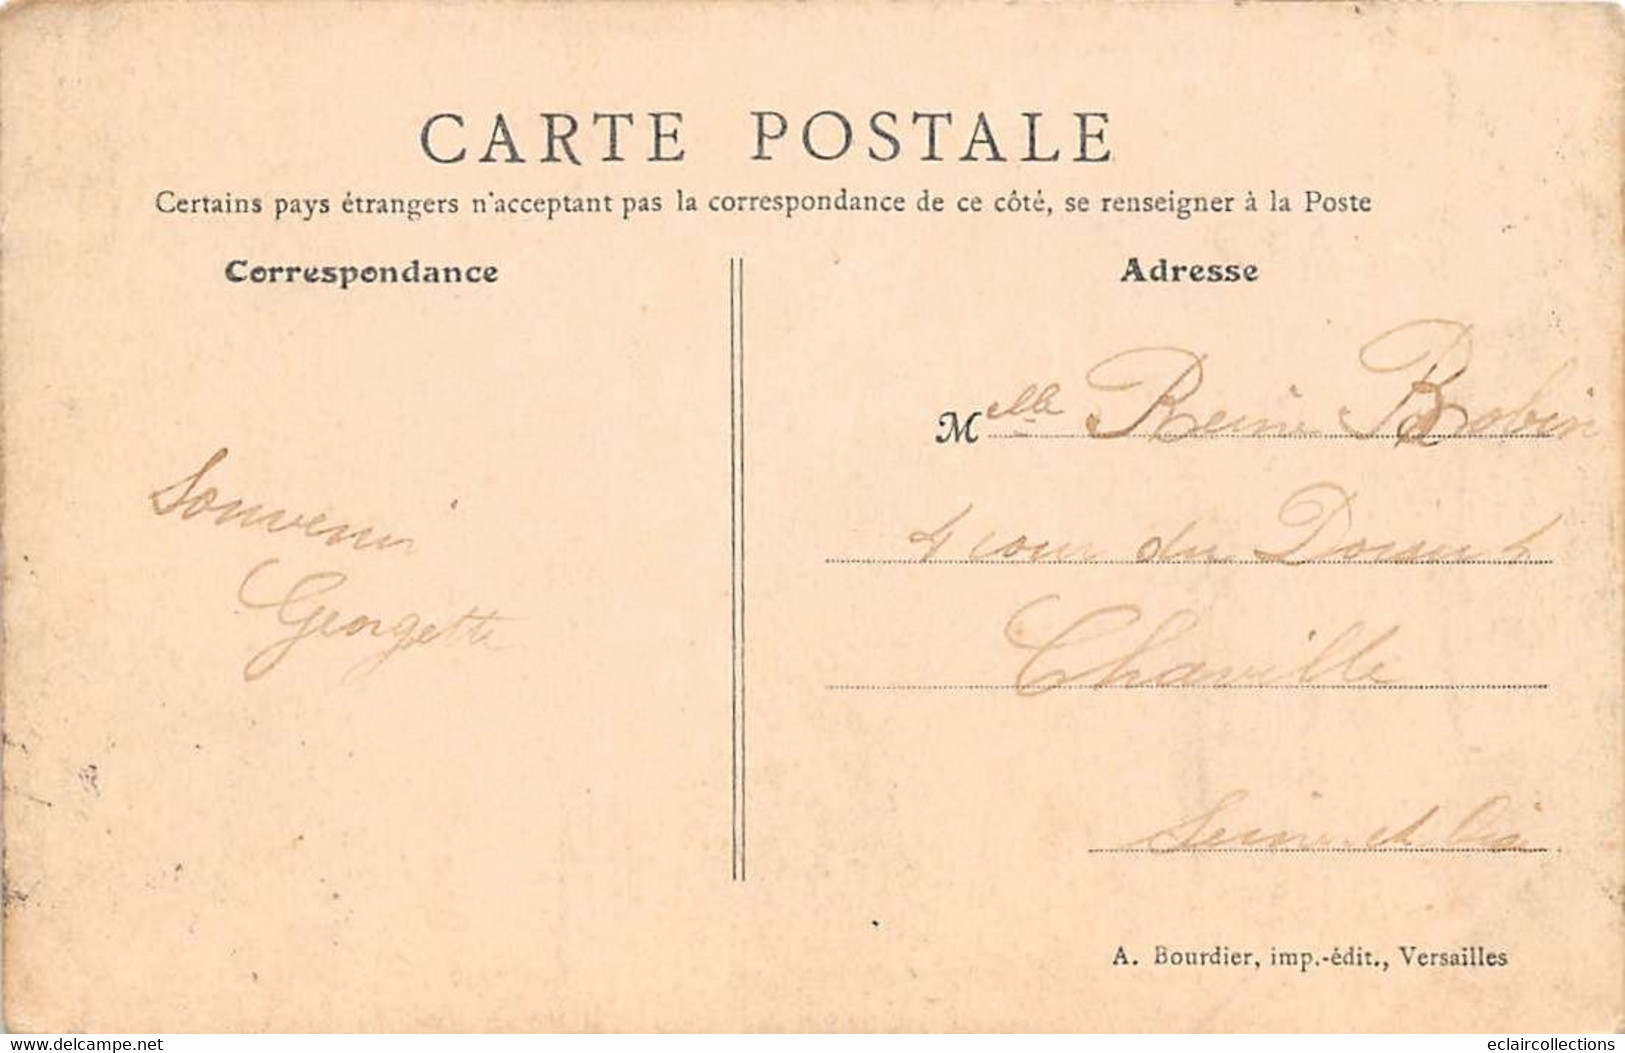 CARTE POSTALE
Certains pays étrangers n'acceptant pas la correspondance de ce côté, se renseigner à la Poste
Correspondance
Adresse
Melle Reine Robin
4 cour du
Chaville
Seine et
Souvenir
Georgette
A. Bourdier, imp.-édit., Versailles
www.delcampe.net
eclaircollections